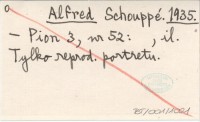 Alfred Schouppé. 1935.
– Pion 3, nr 52: , il.
Tylko reprod. portretu.